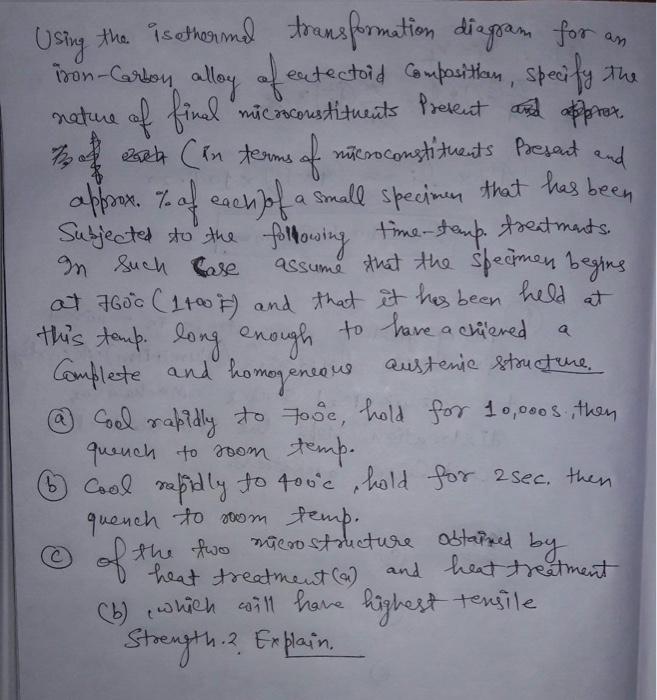 Using the isothermal transformation diagram for an
iron-Carbon alloy of eutectoid Composition, specify the
nature of final microconstituents Present and approx.
% of each (in terms of microconstituents Present and
approx. % of each) of a small specimen that has been
Subjected to the following time-temp. treatments.
In Such Case assume that the specimen begins
at 760°C (1400°F) and that it has been held at
this temp. long enough to have achieved a
Complete and homogeneous austenic structure.
(a) Cool rapidly to 700°c, hold for 10,000 s, then
quench to room temp.
(b) Cool rapidly to 400°c, hold for 2 sec. then
quench to room temp.
(c) of the two microstructure obtained by
heat treatment (a) and heat treatment
(b), which will have highest tensile
Strength.? Explain.